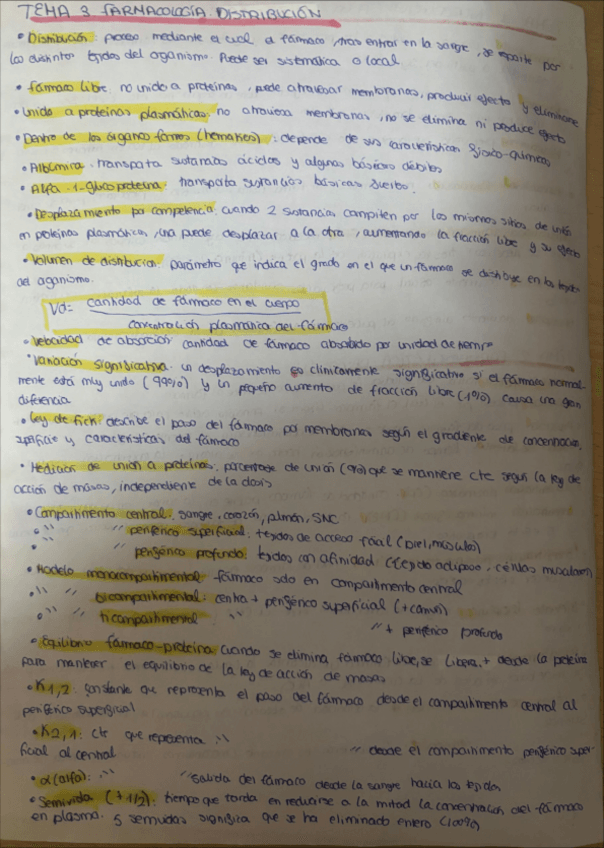 TEMA 3 FARMACOLOGÍA. DISTRIBUCIÓN
• Distribución: proceso mediante el cual el fármaco, tras entrar en la sangre, se reparte por
los distintos tejidos del organismo. Puede ser sistemática o local
• fármaco libre: no unido a proteínas, puede atravesar membranas, producir efecto y eliminarse
• Unido a proteínas plasmáticas: no atraviesa membranas, no se elimina ni produce efecto
• Dentro de los órganos formes (hematies): depende de sus características fisico-químicas
• Albúmina: transporta sustancias ácidas y algunas básicas débiles
• Alfa-1-glicoproteína: transporta sustancias básicas
• Desplazamiento por competencia: cuando 2 sustancias compiten por los mismos sitios de unión
en proteínas plasmáticas, una puede desplazar a la otra, aumentando la fracción libre y su efecto
• Volumen de distribución: parámetro que indica el grado en el que un fármaco se distribuye en los tejidos
del organismo.
Vd= cantidad de fármaco en el cuerpo
concentración plasmática del fármaco
• Velocidad de absorción: cantidad de fármaco absorbido por unidad de tiempo
• Variación significativa: un desplazamiento es clínicamente significativo si el fármaco normal-
mente está muy unido (99%) y un pequeño aumento de fracción libre (1%) causa una gran
diferencia
• Ley de Fick: describe el paso del fármaco por membranas según el gradiente de concentración,
superficie y características del fármaco
• Medición de unión a proteínas: porcentaje de unión (%) que se mantiene cte según la ley de
acción de masas, independiente de la dosis
• Compartimento central: sangre, corazón, pulmón, SNC
• " " periférico superficial: tejidos de acceso fácil (piel, músculos)
• " " periférico profundo: tejidos con afinidad (tejido adiposo, células musculares)
• Modelo monocompartimental: fármaco solo en compartimento central
• " " bicompartimental: central + periférico superficial (+ común)
• " " tricompartimental " " " + periférico profundo
• Equilibrio fármaco-proteína: cuando se elimina fármaco libre, se libera + desde la proteína
para mantener el equilibrio de la ley de acción de masas
• K1,2: constante que representa el paso del fármaco desde el compartimento central al
periférico superficial
• K2,1: cte que representa " " " desde el compartimento periférico super-
ficial al central
• α(alfa): " " " salida del fármaco desde la sangre hacia los tejidos
• Semivida (t 1/2): tiempo que tarda en reducirse a la mitad la concentración del fármaco
en plasma. 5 semividas significa que se ha eliminado entero (100%)